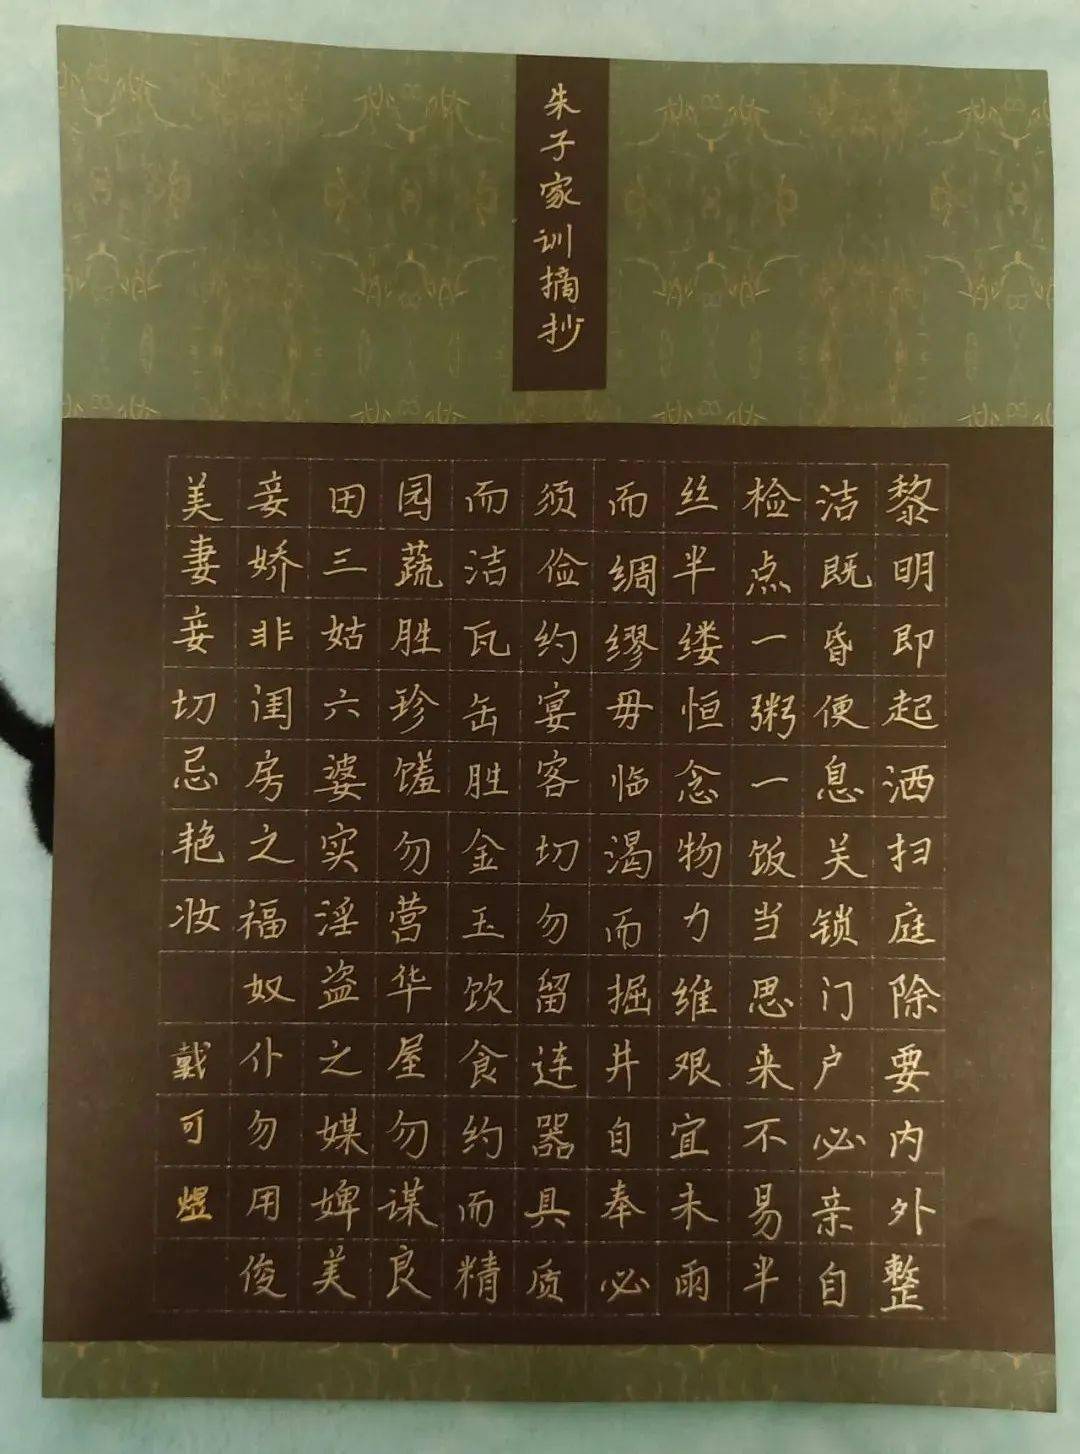 朱子家训摘抄
黎明即起洒扫庭除要内外整
洁既昏便息关锁门户必亲自
检点一粥一饭当思来不易半
丝半缕恒念物力维艰宜未雨
而绸缪毋临渴而掘井自奉必
须俭约宴客切勿留连器具质
而洁瓦缶胜金玉饮食约而精
园蔬胜珍馐勿营华屋勿谋良
田三姑六婆实淫盗之媒婢美
妾娇非闺房之福奴仆勿用俊
美妻妾切忌艳妆 戴可煜